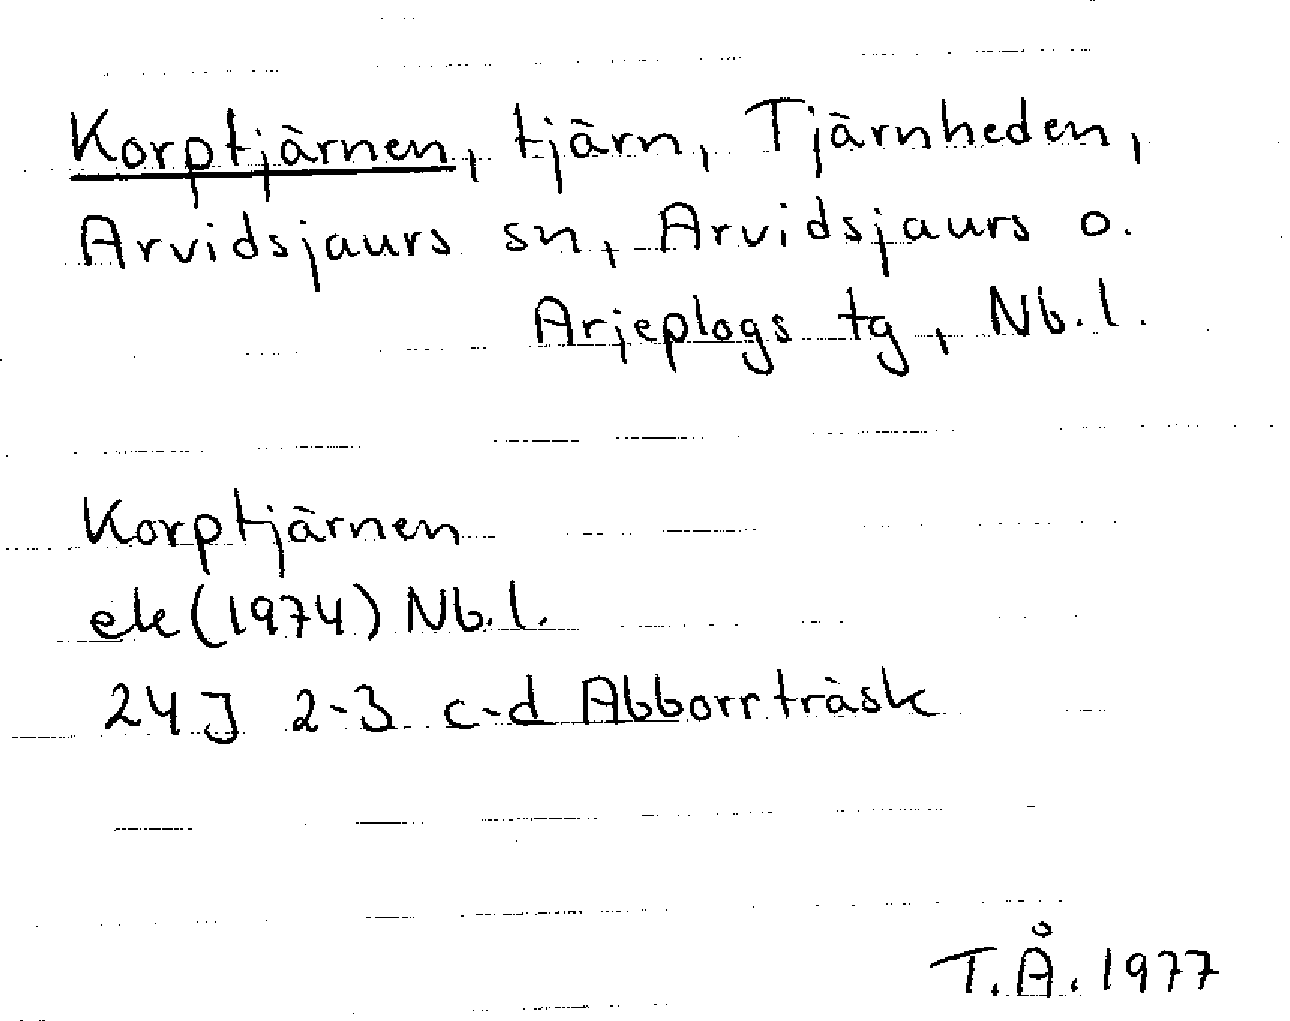 Korptjärnen, tjärn, Tjärnheden,
Arvidsjaurs sn, Arvidsjaurs o.
Arjeplogs tg, Nb.l.
Korptjärnen
ek (1974) Nb.l.
24J 2-3 c-d Abborrträsk
T.Å. 1977